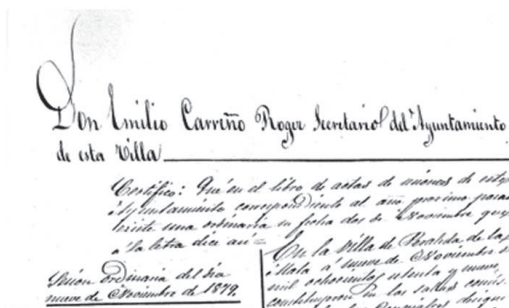 Don Emilio Carreño Roger Secretario del Ayuntamiento
de esta Villa
Certifico: Que en el libro de actas de sesiones de este
Ayuntamiento correspondiente al año procsimo pasa
existe una ordinaria su fecha dos de Noviembre que
a la letra dice asi =
Sesion Ordinaria del dia
nueve de Noviembre de 1879.
En la Villa de Peralta de la
á nueve de Noviembre de
mil ochocientos setenta y nueve
constituyeron en las salas consis